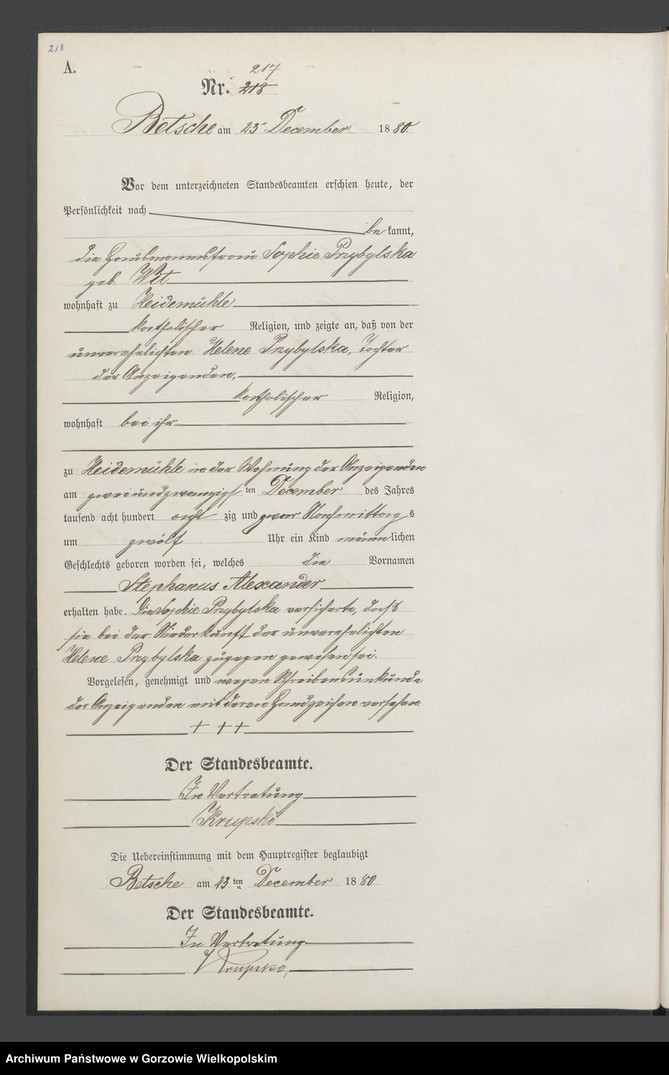 218
A.
217
Nr. 218
Betsche am 23 December 1880.
Vor dem unterzeichneten Standesbeamten erschien heute, der
Persönlichkeit nach
be kannt,
die Frau Sophie Przybylska
geb. Wit
wohnhaft zu Heidemühle
katholischer Religion, und zeigte an, daß von der
unverehelichten Helene Przybylska, Tochter
der Anzeigenden,
katholischer Religion,
wohnhaft bei ihr
zu Heidemühle in der Wohnung der Anzeigenden
am zweiundzwanzigsten ten December des Jahres
tausend acht hundert acht zig und zwar Nachmittags
um zwölf Uhr ein Kind männlichen
Geschlechts geboren worden sei, welches die Vornamen
Stephanus Alexander
erhalten habe. Die Sophie Przybylska versicherte, daß
sie bei der Niederkunft der unverehelichten
Helene Przybylska zugegen gewesen sei.
Vorgelesen, genehmigt und wegen Schreibensunkunde
der Anzeigenden mit deren Handzeichen versehen.
+ + +
Der Standesbeamte.
In Vertretung
Krupski
Die Uebereinstimmung mit dem Hauptregister beglaubigt
Betsche am 23 ten December 1880
Der Standesbeamte.
In Vertretung
Krupski
Archiwum Państwowe w Gorzowie Wielkopolskim